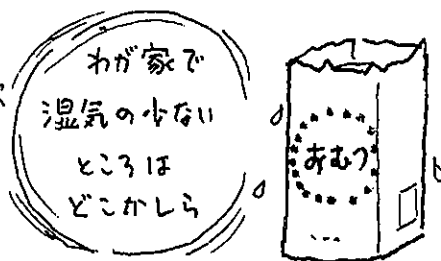 わが家で
湿気の少ない
ところは
どこかしら
おむつ